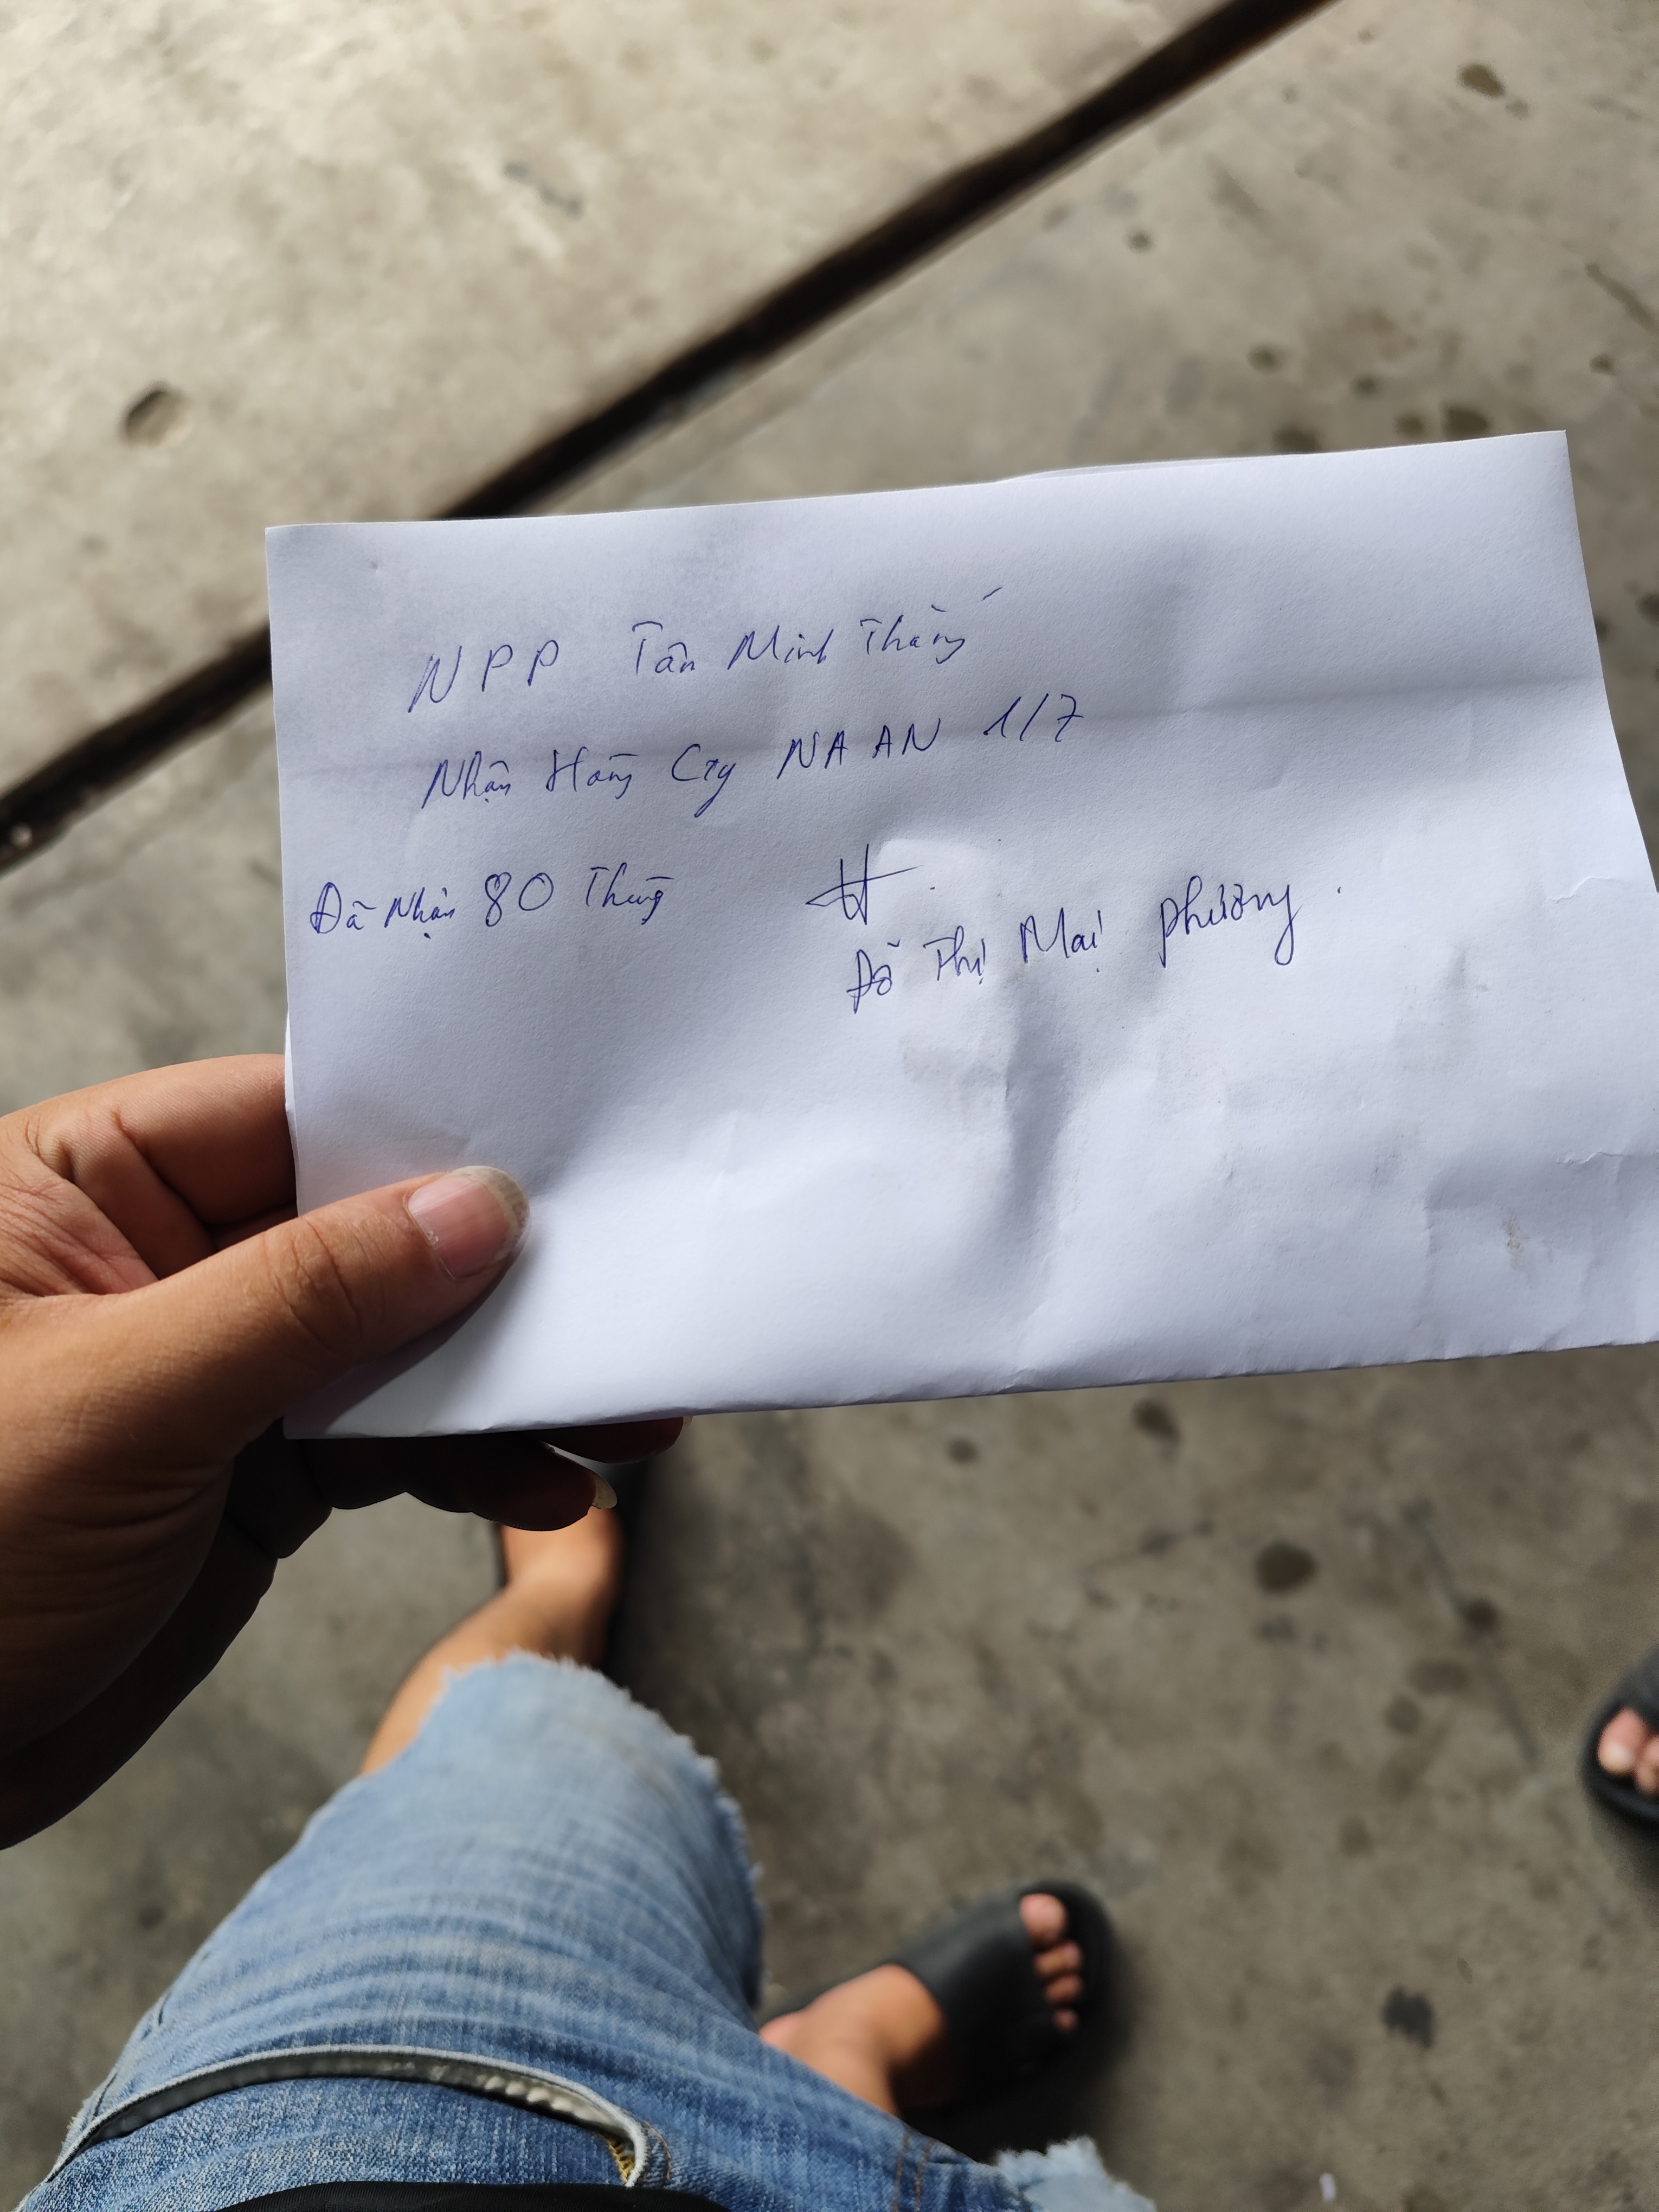 NPP Tân Minh Thắng
Nhận Hàng Cty NA AN 1/7
Đã Nhận 80 Thùng
Đỗ Thị Mai Phương.